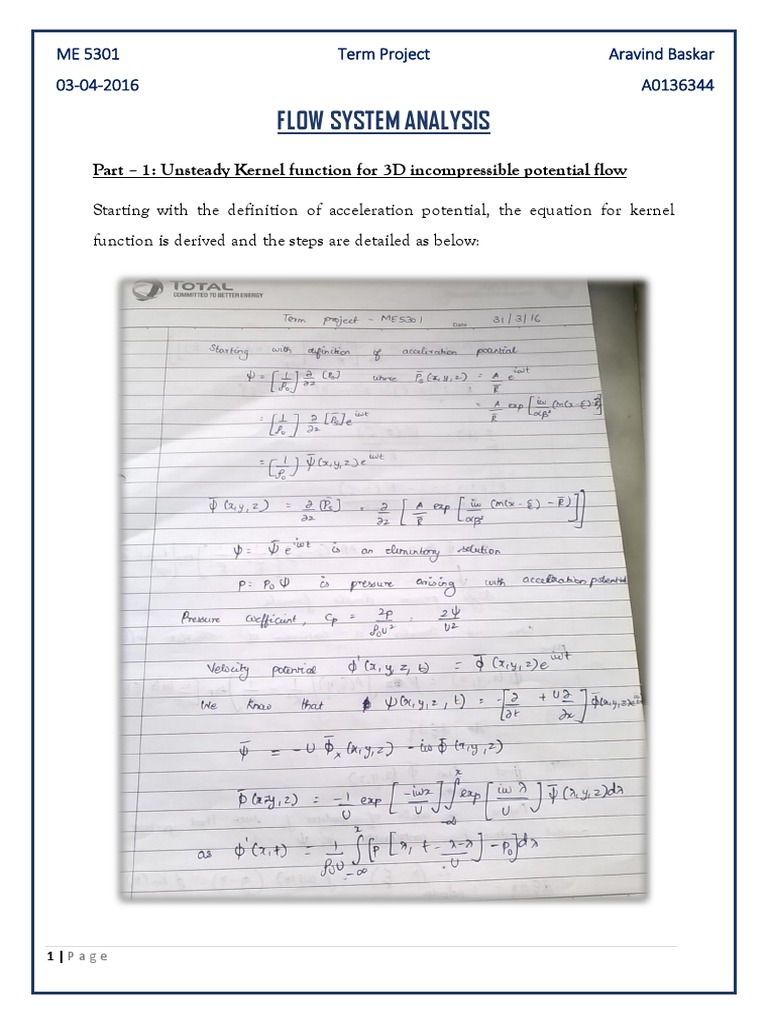 ME 5301 Term Project Aravind Baskar
03-04-2016 A0136344
FLOW SYSTEM ANALYSIS
Part – 1: Unsteady Kernel function for 3D incompressible potential flow
Starting with the definition of acceleration potential, the equation for kernel
function is derived and the steps are detailed as below:
TOTAL
COMMITTED TO BETTER ENERGY
Term project - ME5301 Date 31/3/16
Starting with definition of acceleration potential
ψ = [1/ρ₀] ∂/∂z [P₀] where P̄₀(x,y,z) = A/R̄ e^{iωt}
= A/R̄ exp[iω/αβ² (m(x-ξ)-R̄)]
= [1/ρ₀] ∂/∂z [P̄₀]e^{iωt}
= (1/ρ₀) ψ̄(x,y,z)e^{iωt}
ψ̄(x,y,z) = ∂/∂z [P̄₀] = ∂/∂z [A/R̄ exp[iω/αβ² (m(x-ξ)-R̄)]]
ψ = ψ̄e^{iωt} is an elimentory solution
P = P₀ψ is pressure arising with acceleration potential
Pressure coefficient, Cp = 2P/ρ₀U² . 2ψ/U²
Velocity potential φ'(x,y,z,t) = φ̄(x,y,z)e^{iωt}
We know that ψ(x,y,z,t) = -[∂/∂t + U∂/∂x] φ̄(x,y,z)e^{iωt}
ψ̄ = -U φ̄ₓ(x,y,z) - iω φ̄(x,y,z)
φ̄(x,y,z) = -1/U exp[-iωx/U] ∫_{-∞}^{x} exp[iωλ/U] ψ̄(λ,y,z)dλ
as φ'(x,t) = 1/ρ₀U ∫_{-∞}^{x} [P[λ, t - x-λ/U] - P₀]dλ
1 | Page